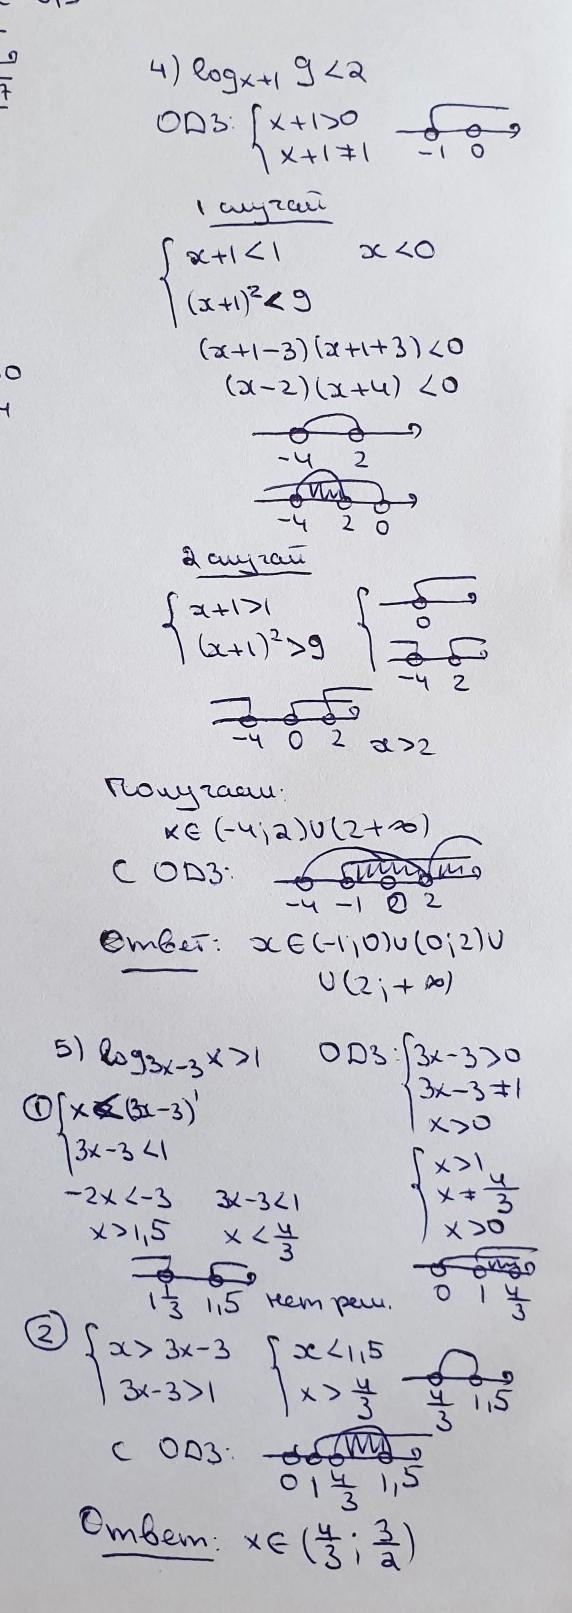 4) log_{x+1} 9 < 2
ОДЗ: { x+1>0
x+1≠1
-1 0
1 случай
{ x+1<1 x<0
(x+1)² < 9
(x+1-3)(x+1+3)<0
(x-2)(x+4) <0
-4 2
-4 2 0
2 случай
{ x+1>1
(x+1)²>9
0
-4 2
-4 0 2 x>2
Получаем:
x∈(-4;2)∪(2+∞)
С ОДЗ:
-4 -1 0 2
Ответ: x∈(-1;0)∪(0;2)∪
∪(2;+∞)
5) log_{3x-3} x>1 ОДЗ: { 3x-3>0
3x-3≠1
x>0
① { x < (3x-3)¹
3x-3<1
{ x>1
x≠4/3
x>0
-2x<-3 3x-3<1
x>1,5 x<4/3
1 1/3 1,5 нет реш.
0 1 4/3
② { x>3x-3 { x<1,5
3x-3>1 x>4/3
4/3 1,5
С ОДЗ:
0 1 4/3 1,5
Ответ: x∈(4/3; 3/2)